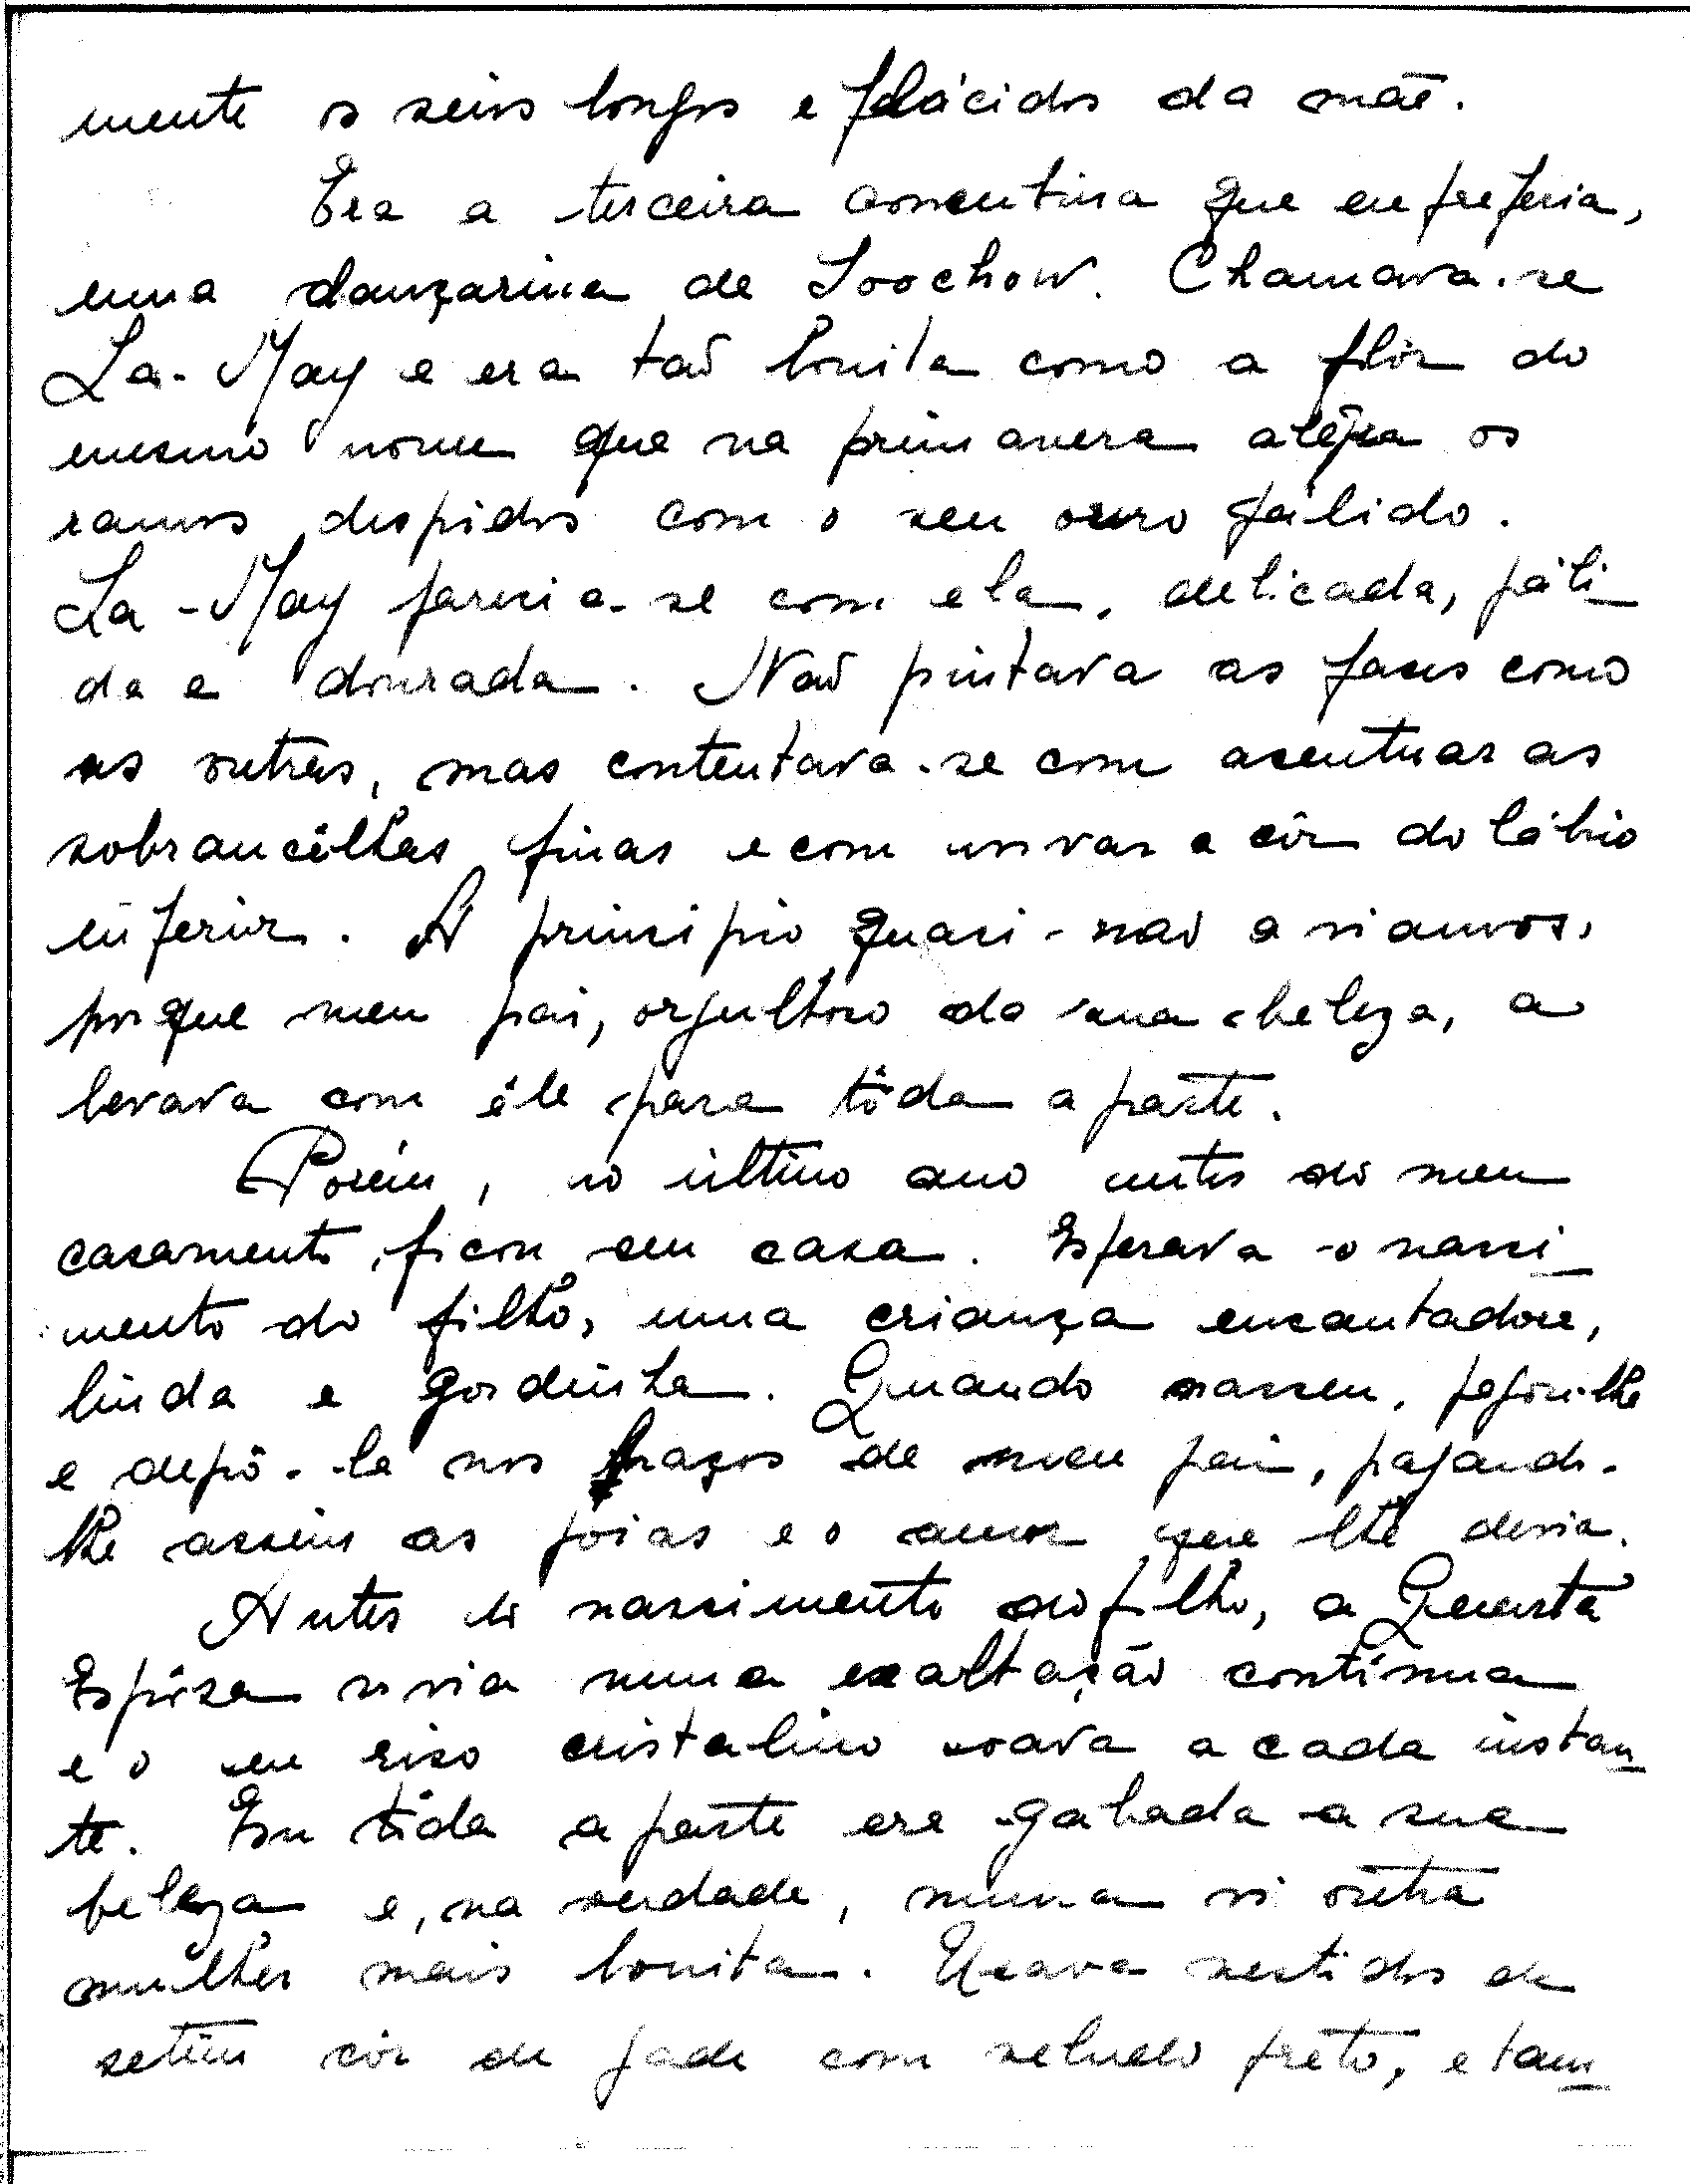 mente os seios longos e flácidos da mãe.
Era a terceira concubina que eu preferia,
uma dançarina de Soochow. Chamava-se
La-May e era tão bonita como a flôr do
mesmo nome que na primavera alegra os
ramos despidos com o seu ouro pálido.
La-May parecia-se com ela, delicada, páli-
da e dourada. Não pintava as faces como
as outras, mas contentava-se com acentuar as
sobrancêlhas finas e com avivar a côr do lábio
inferior. A principio quasi-não a viamos,
porque meu pai, orgulhoso da sua beleza, a
levava com êle para tôda a parte.
Porém, no último ano antes do meu
casamento, ficou em casa. Esperava o nasci-
mento do filho, uma criança encantadora,
linda e gordinha. Quando nasceu, pegou-lhe
e depô-la nos braços de meu pai, pagando-
lhe assim as joias e o amor que lhe devia.
Antes do nascimento do filho, a Quarta
Espôsa vivia numa exaltação contínua
e o seu riso cristalino soava a cada instan-
te. Em tôda a parte era gabada a sua
beleza e, na verdade, nunca vi outra
mulher mais bonita. Usava vestidos de
setim côr de jade com veludo preto, e tam-